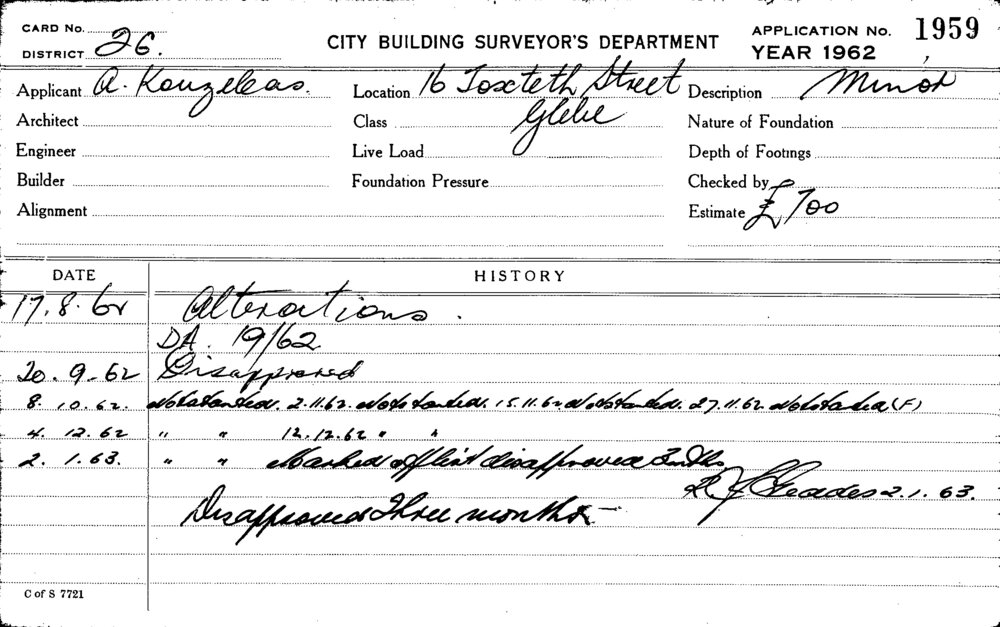 CARD No.
DISTRICT 26.
CITY BUILDING SURVEYOR'S DEPARTMENT
APPLICATION No. 1959
YEAR 1962
Applicant A. Kouzeleas. Location 16 Toxteth Street Description Minor
Architect Class Glebe Nature of Foundation
Engineer Live Load Depth of Footings
Builder Foundation Pressure Checked by
Alignment Estimate £700
DATE HISTORY
17.8.62 Alterations.
DA. 19/62
20.9-62 Disapproved
8.10.62. Not started. 2.11.62. Not started. 15.11.62 Not started. 27.11.62 Not started (F)
4.12.62 " " 12.12.62 " "
2.1.63. " " Marked off list disapproved 3 mths
2.1.63.
Disapproved Three months
C of S 7721